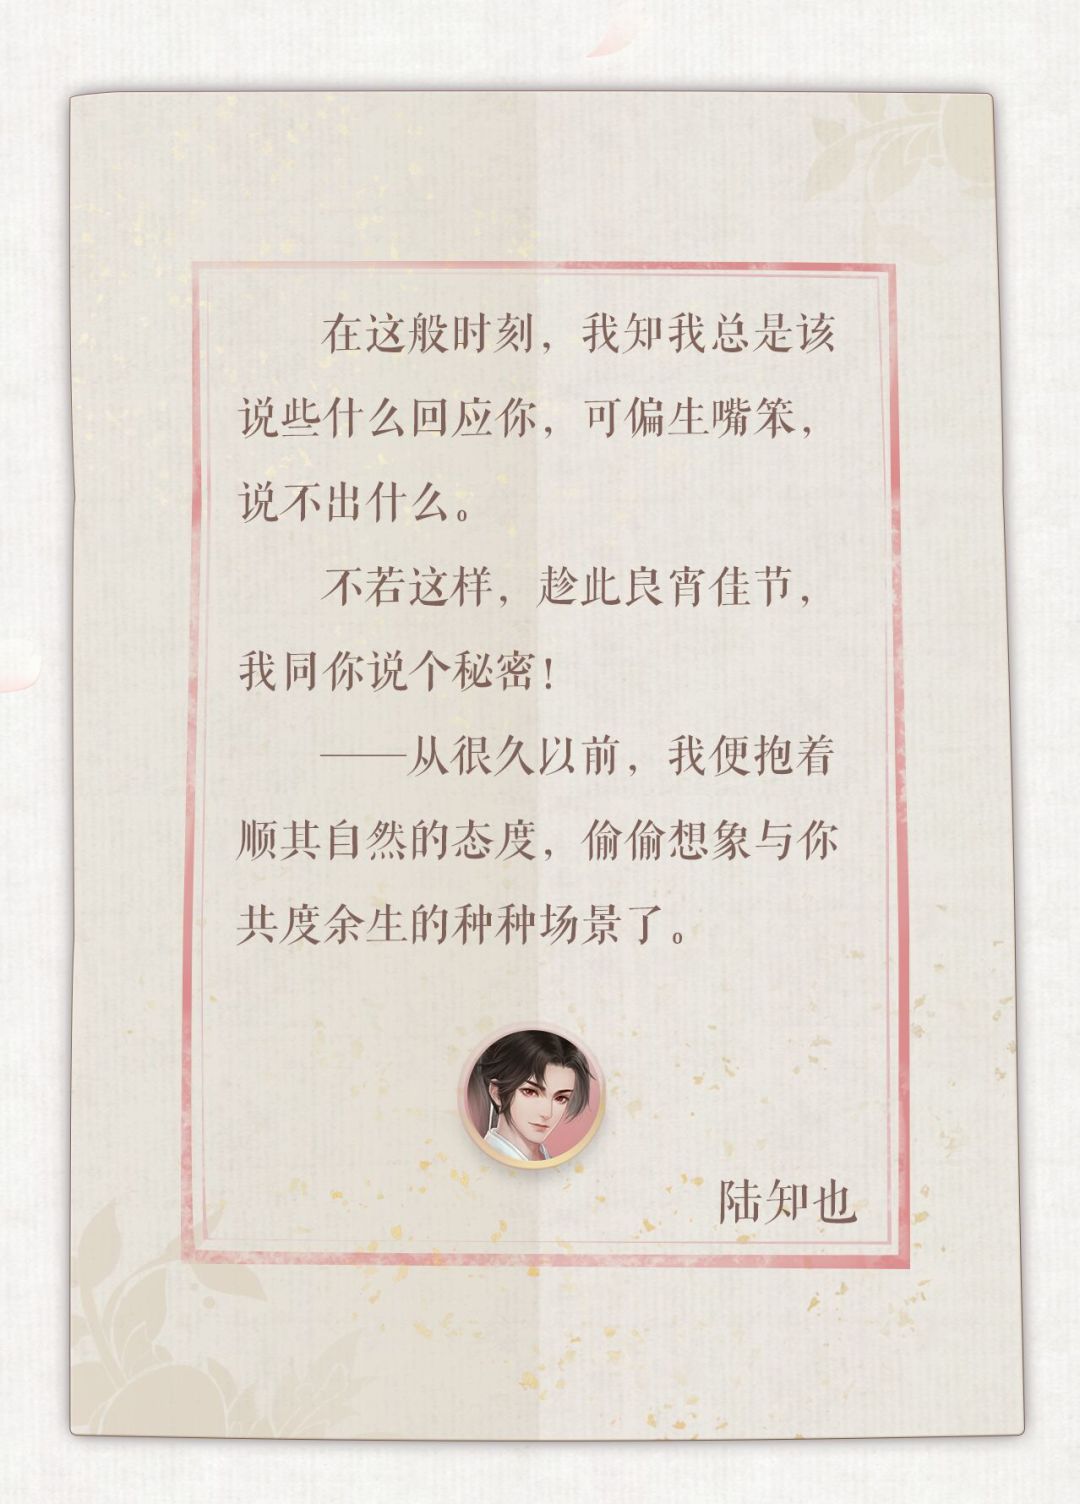 在这般时刻，我知我总是该
说些什么回应你，可偏生嘴笨，
说不出什么。
不若这样，趁此良宵佳节，
我同你说个秘密！
——从很久以前，我便抱着
顺其自然的态度，偷偷想象与你
共度余生的种种场景了。
陆知也